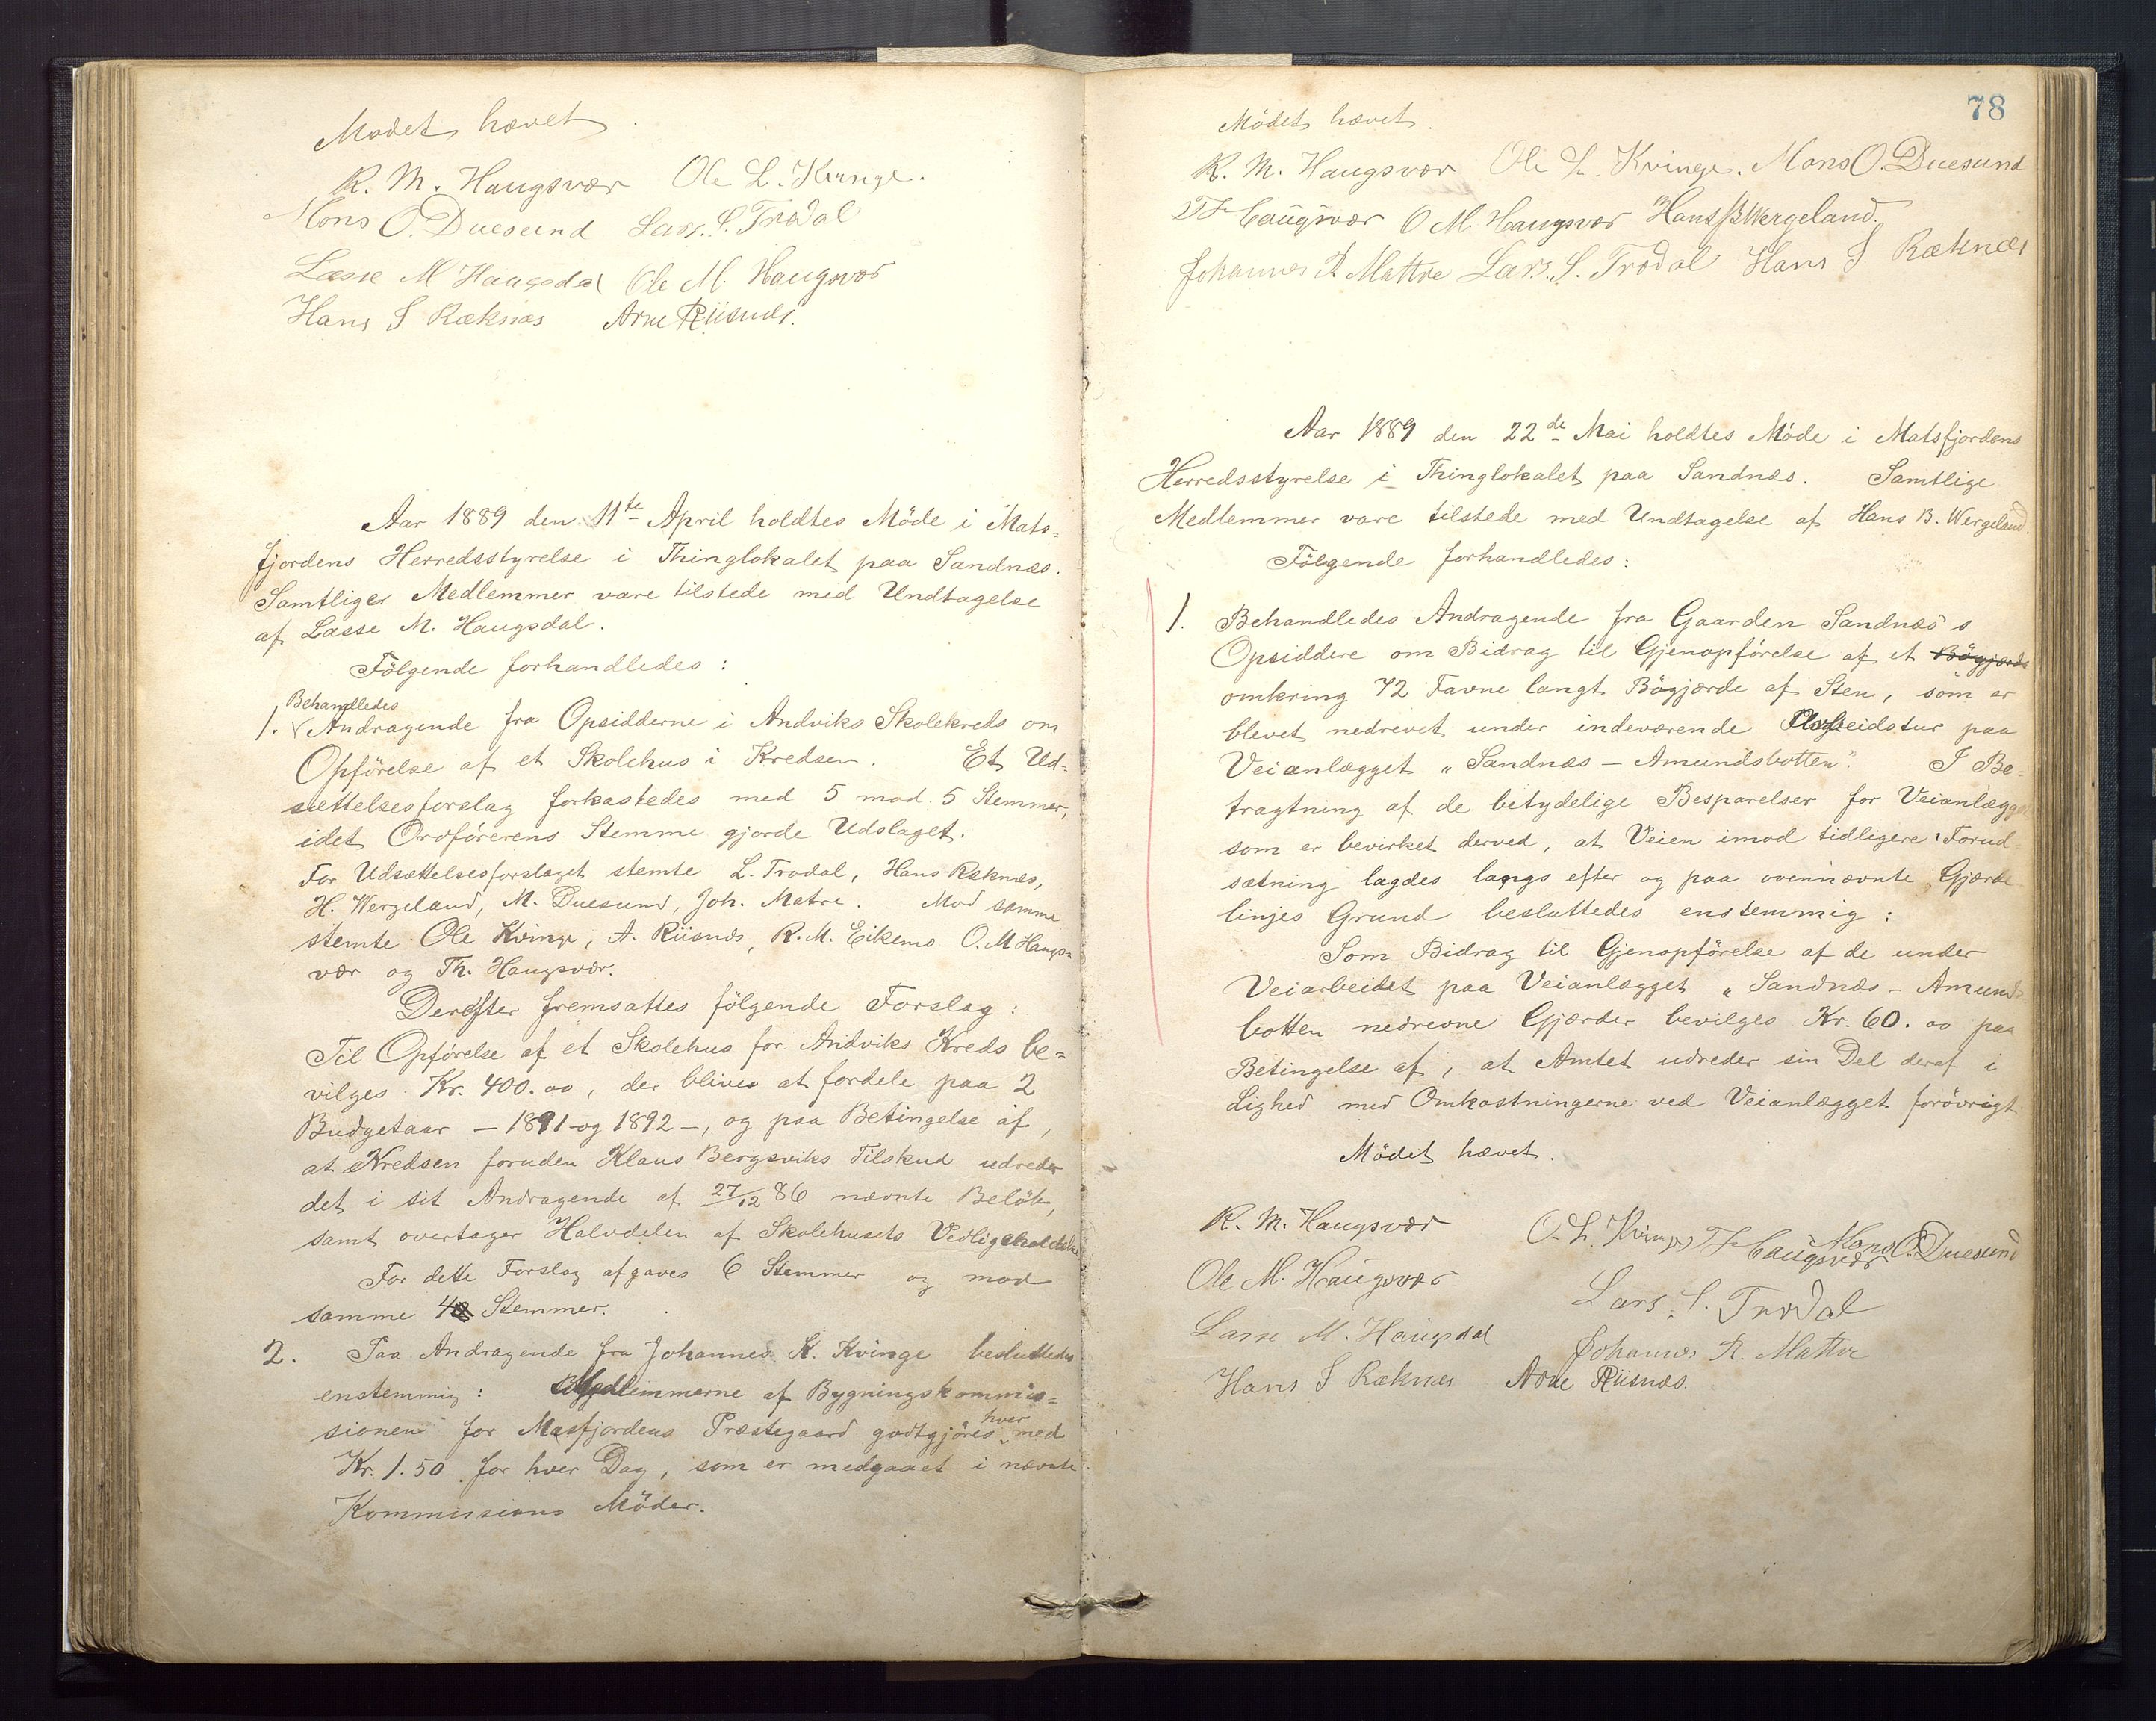 Mödet hævet.
R. M. Haugsvær Ole L. Kvinge.
Mons O. Duesund Lars. S. Trodal
Lasse M Haugsdal Ole M. Haugsvær
Hans S Ræknæs Arne Riisnæs.
Aar 1889 den 11te April holdtes Möde i Mats=
fjordens Herredsstyrelse i Thinglokalet paa Sandnæs.
Samtliger Medlemmer vare tilstede med Undtagelse
af Lasse M. Haugsdal.
Fölgende forhandledes:
Behandledes
1. Andragende fra Opsidderne i Andviks Skolekreds om
Opförelse af et Skolehus i Kredsen. Et Ud-
sættelsesforslag forkastedes med 5 mod 5 Stemmer,
idet Ordförerens Stemme gjorde Udslaget.
For Udsættelsesforslaget stemte L. Trodal, Hans Ræknæs,
H. Wergeland, M. Duesund, Joh. Matre. Mod samme
stemte Ole Kvinge, A. Riisnæs, R. M. Eikemo O. M Haugs-
vær og Th. Haugsvær.
Derefter fremsattes fölgende Forslag:
Til Opförelse af et Skolehus for Andviks Kreds be=
vilges Kr. 400.00, der bliver at fordele paa 2
Budgetaar – 1891 og 1892 –, og paa Betingelse af,
at Kredsen foruden Klaus Bergsviks Tilskud udreder
det i sit Andragende af 27/12 86 nævnte Belöb,
samt overtager Halvdelen af Skolehusets Vedligeholdelse
For dette Forslag afgaves 6 Stemmer og mod
samme 4 Stemmer.
2. Paa Andragende fra Johannes K. Kvinge besluttedes
enstemmig: Medlemmerne af Bygningskommis=
sionen for Masfjordens Præstegaard godtgjöres hver med
Kr. 1.50 for hver Dag, som er medgaaet i nævnte
Kommissions Möder.
78
Mödet hævet.
R. M. Haugsvær Ole L. Kvinge. Mons O. Duesund
T Haugsvær O M. Haugsvær Hans B Wergeland.
Johannes A Mattre Lars. S. Trodal Hans S Ræknes
Aar 1889 den 22de Mai holdtes Möde i Matsfjordens
Herredsstyrelse i Thinglokalet paa Sandnæs. Samtlige
Medlemmer vare tilstede med Undtagelse af Hans B. Wergeland.
Fölgende forhandledes:
1. Behandledes Andragende fra Gaarden Sandnæs's
Opsiddere om Bidrag til Gjenopförelse af et Bögjærde
omkring 72 Favne langt Bögjærde af Sten, som er
blevet nedrevet under indeværende Arbeidstur paa
Veianlægget "Sandnæs – Amundsbotten". I Be=
tragtning af de betydelige Besparelser for Veianlægget
som er bevirket derved, at Veien imod tidligere Forud
sætning lagdes langs efter og paa ovennævnte Gjærde
linjes Grund besluttedes enstemmig:
Som Bidrag til Gjenopförelse af de under
Veiarbeidet paa Veianlægget "Sandnæs – Amunds
botten nedrevne Gjærder bevilges Kr. 60.00 paa
Betingelse af, at Amtet udreder sin Del deraf i
Lighed med Omkostningerne ved Veianlægget forövrigt
Mödet hævet.
R. M. Haugsvær O. L. Kvinge T Haugsvær Mons O. Duesund
Ole M. Haugsvær Lars. S. Trodal
Lasse M. Haugsdal Johannes A. Mattre
Hans S Ræknes Arne Riisnæs.